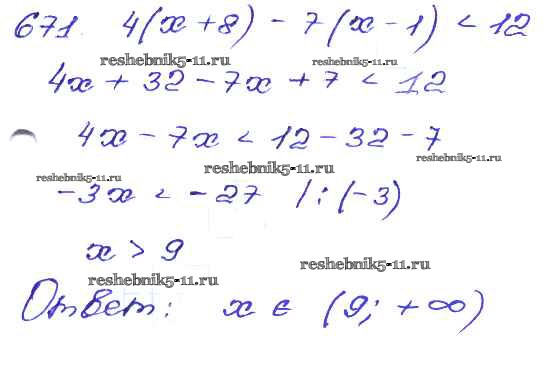 671. 4(x+8) - 7(x-1) < 12
reshebnik5-11.ru reshebnik5-11.ru
4x + 32 - 7x + 7 < 12
4x - 7x < 12 - 32 - 7
reshebnik5-11.ru reshebnik5-11.ru reshebnik5-11.ru
-3x < -27 /:(-3)
x > 9
reshebnik5-11.ru reshebnik5-11.ru
Ответ: x ∈ (9; +∞)